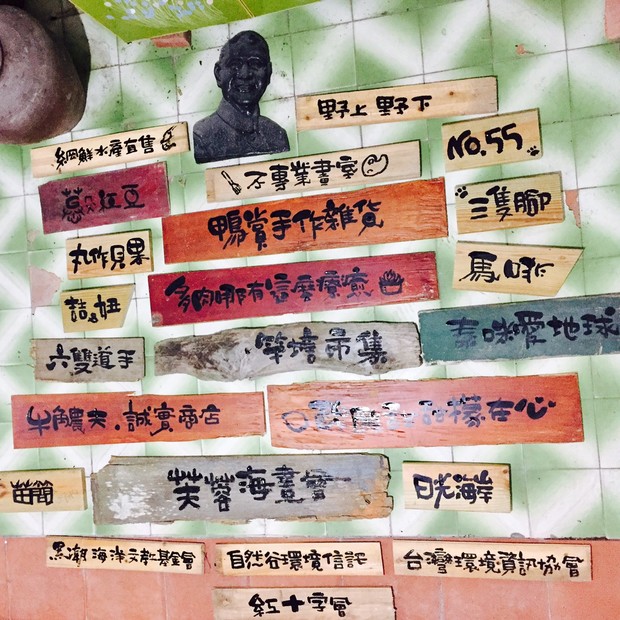 野上 野下
NO.55
網鮮水產有售
不專業畫室
蔥 紅豆
三隻腳
鴨賞手作雜貨
丸作貝果
馬
多肉哪有這麼療癒
喆 妞
泰咪愛地球
市集
六雙道手
牛角農夫.誠實商店
樣在心
苗簡
芙蓉海畫會
日光海岸
黑潮海洋文教基金會
自然谷環境信託
台灣環境資訊協會
紅十字會